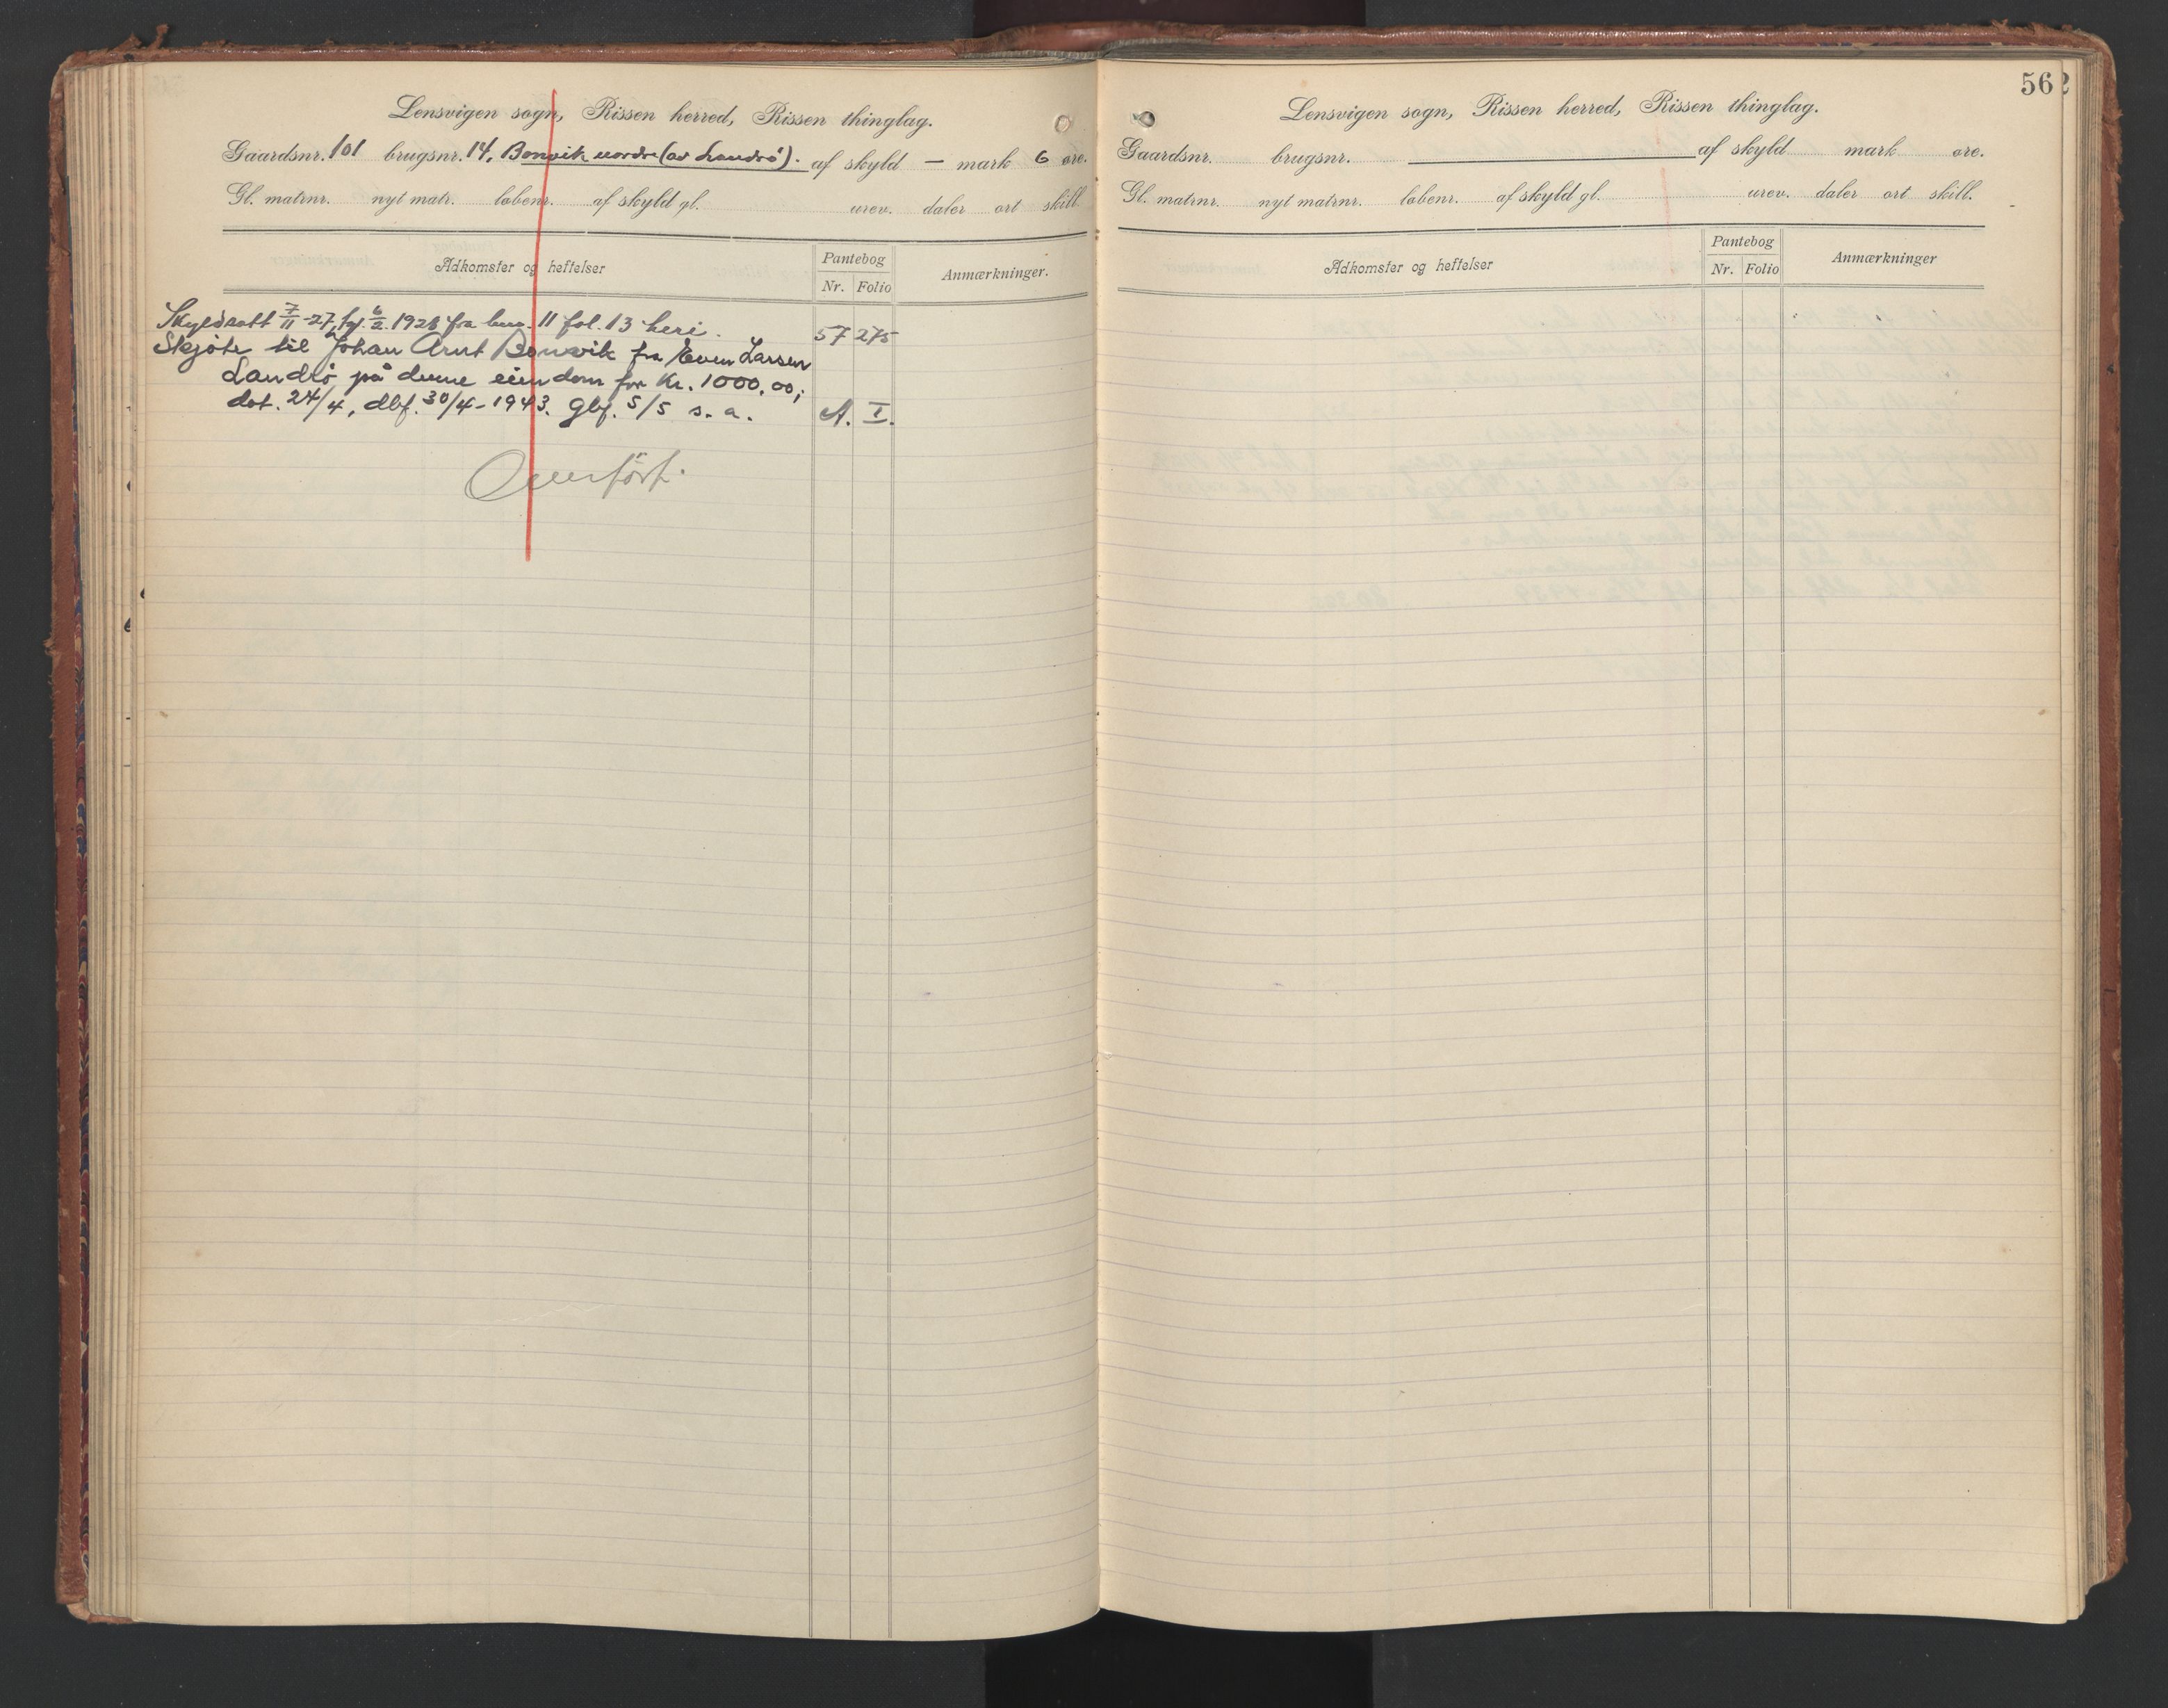 Lensvigen sogn, Rissen herred, Rissen thinglag.
Gaardsnr. 101 brugsnr. 14, Bonvik nordre (av Landrö). af skyld — mark 6 øre.
Gl. matrnr. nyt matr. løbenr. af skyld gl. urev. daler ort skill.
Adkomster og heftelser
Pantebog
Nr. Folio
Anmærkninger.
Skyldsatt 7/11-27, tgl. 6/2. 1928 fra brn. 11 fol. 13 heri. 57 275
Skjöte til Johan Arnt Bonvik fra Even Larsen
Landrö på denne eiendom for Kr. 1000,00,
dat. 24/4, dbf. 30/4-1943. Gbf. 5/5 s. a. A. I.
Overfört.
562
Lensvigen sogn, Rissen herred, Rissen thinglag.
Gaardsnr. brugsnr. af skyld mark øre.
Gl. matrnr. nyt matrnr. løbenr. af skyld gl. urev. daler ort skill.
Adkomster og heftelser
Pantebog
Nr. Folio
Anmærkninger